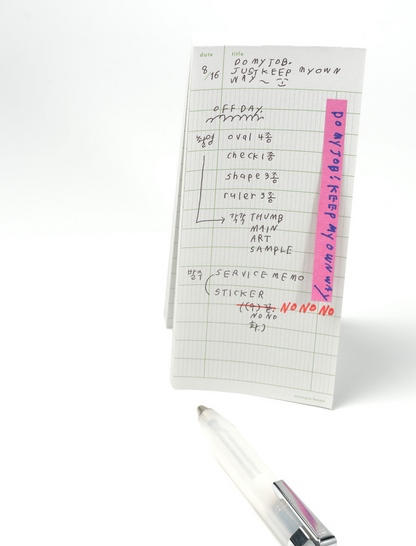 date title
8/16 DO MY JOB.
JUST KEEP MY OWN
WAY ~
OFF DAY.
촬영 oval 4종
check 1종
shape 3종
ruler 3종
각각 THUMB
MAIN
ART
SAMPLE
발주 SERVICE MEMO
STICKER
NO NO NO
NO NO
DO MY JOB! KEEP MY OWN WAY